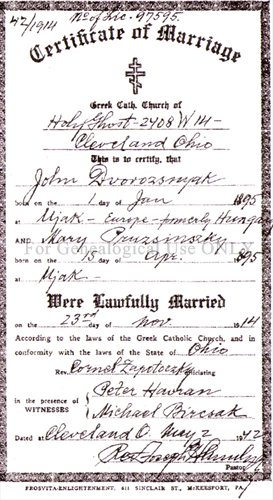 42/1914 No of Lic. 97595.
Certificate of Marriage
Greek Cath. Church of
Holy Ghost 2408 W 14 -
Cleveland Ohio
This is to certify, that
John Dvorozsnyak
born on the 1 day of Jan 1895
at Ujak - Europe - formerly Hungary
AND Mary Pruzsinszky
For Genealogical Use ONLY
born on the 15 day of Apr. 1895
at Ujak -
Were Lawfully Married
on the 23rd day of Nov 1914
According to the laws of the Greek Catholic Church, and in
conformity with the laws of the State of Ohio
Rev. Cornel Zapotocky officiating
Peter Havran
in the presence of
WITNESSES
Michael Bircsak
Dated at Cleveland O. May 2 1942
Rev Joseph
Pastor
PROSVITA-ENLIGHTENMENT, 611 SINCLAIR ST., McKEESPORT, PA.